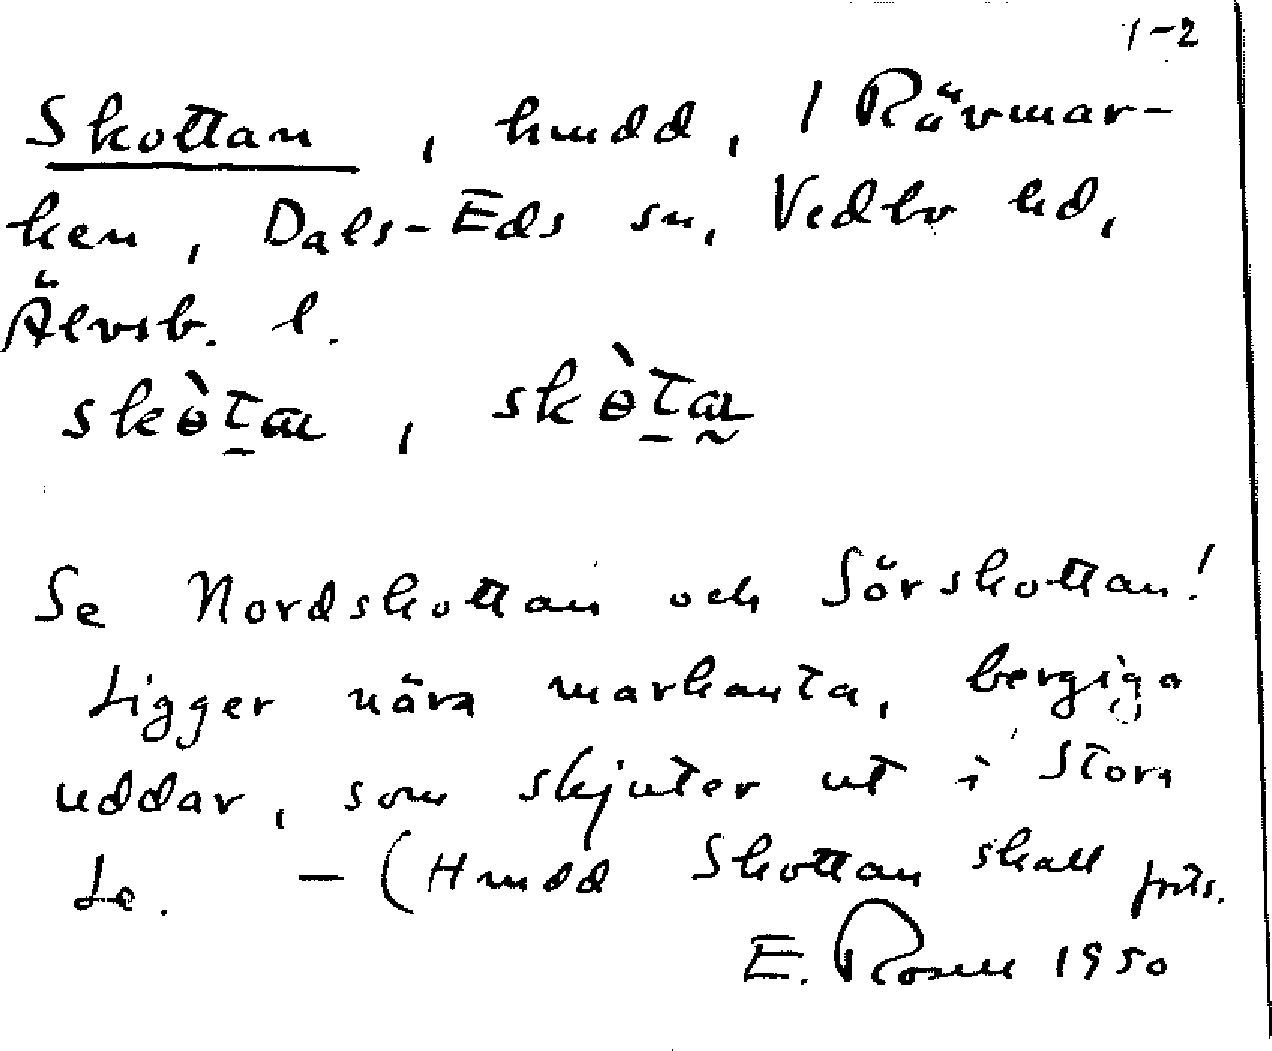 1-2
Skottan, hmdd, 1 Rävmar-
ken, Dals-Eds sn, Vedbo hd,
Älvsb. l.
Se Nordskottan och Sörskottan!
Ligger nära markanta, bergiga
uddar, som skjuter ut i Stora
Le. - (Hmdd Skottan skall
E. Rosell 1950